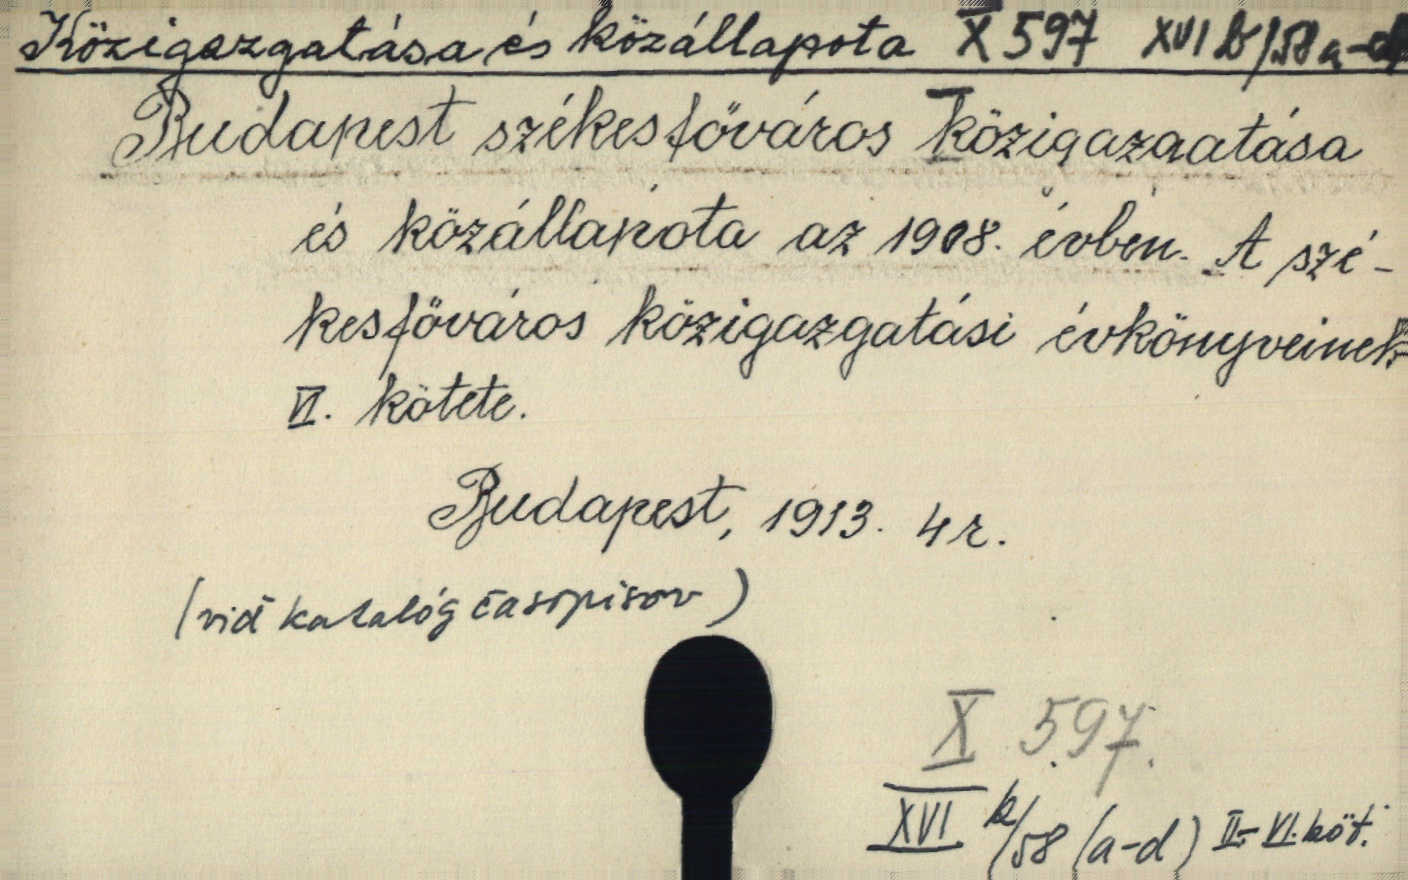 Közigazgatása és közállapota X 597 XVI b/58 a-d
Budapest székesfőváros közigazgatása
és közállapota az 1908. évben. A szé-
kesfőváros közigazgatási évkönyveinek
VI. kötete.
Budapest, 1913. 4r.
(viď katalóg časopisov)
X 597.
XVI b/58 (a-d) II.-VI. köt.